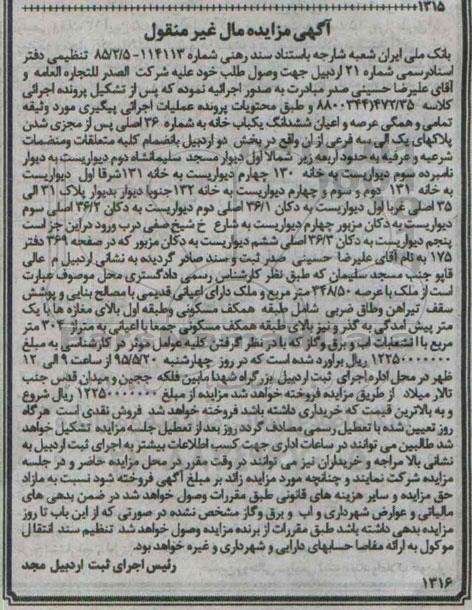 ۱۳۱۵
آگهی مزایده مال غیر منقول
بانک ملی ایران شعبه شارجه باستناد سند رهنی شماره ۱۱۴۱۱۳- ۸۵/۲/۵ تنظیمی دفتر
اسناد رسمی شماره ۲۱ اردبیل جهت وصول طلب خود علیه شرکت الصدر للتجاره العامه و
آقای علیرضا حسینی صدر مبادرت به صدور اجرائیه نموده که پس از تشکیل پرونده اجرائی
کلاسه ۸۸۰۰۳۴۴(۴۷۲/۳۵ و طبق محتویات پرونده عملیات اجرائی پیگیری مورد وثیقه
تمامی و همگی عرصه و اعیان ششدانگ یکباب خانه به شماره ۳۶ اصلی پس از مجزی شدن
پلاکهای یک الی سه فرعی از آن واقع در بخش دو اردبیل بانضمام کلیه متعلقات و منضمات
شرعیه و عرفیه به حدود اربعه زیر شمالا اول دیوار مسجد سلیمانشاه دوم دیواریست به دیوار
نامبرده سوم دیواریست به خانه ۱۳۰ چهارم دیواریست به خانه ۱۳۱ شرقا اول دیواریست
به خانه ۱۳۱ دوم و سوم و چهارم دیواریست به خانه ۱۳۲ جنوبا دیوار بدیوار پلاک ۳۱ الی
۳۵ اصلی غربا اول دیواریست به دکان ۳۶/۱ اصلی دوم دیواریست به دکان ۳۶/۲ اصلی سوم
دیواریست به دکان مزبور چهارم دیواریست به شارع خ شیخ صفی درب ورود در این جز است
پنجم دیواریست به دکان ۳۶/۳ اصلی ششم دیواریست به دکان مزبور که در صفحه ۳۶۹ دفتر
۱۷۵ به نام آقای علیرضا حسینی صدر ثبت و سند صادر گردیده به نشانی اردبیل م عالی
قاپو جنب مسجد سلیمان که طبق نظر کارشناس رسمی دادگستری محل موصوف عبارت
است از ملک با عرصه ۳۴۸/۵۰ متر مربع و ملک دارای اعیانی قدیمی با مصالح بنایی و پوشش
سقف تیرآهن و طاق ضربی شامل طبقه همکف مسکونی و طبقه اول بالای مغازه ها با یک
متر پیش آمدگی به گذر و نیز بالای طبقه همکف مسکونی جمعا با اعیانی به متراژ ۳۰۴ متر
مربع با انشعابات آب و برق و گاز که با در نظر گرفتن کلیه عوامل موثر در کارشناسی به مبلغ
۱۲۲۵۰۰۰۰۰۰۰ ریال برآورد شده است که در روز چهارشنبه ۹۵/۵/۲۰ از ساعت ۹ الی ۱۲
ظهر در محل اداره اجرای ثبت اردبیل بزرگراه شهدا مابین فلکه ججین و میدان قدس جنب
تالار میلاد از طریق مزایده فروخته خواهد شد مزایده از مبلغ ۱۲۲۵۰۰۰۰۰۰۰ ریال شروع
و به بالاترین قیمت که خریداری داشته باشد فروخته خواهد شد فروش نقدی است هرگاه
روز تعیین شده با تعطیل رسمی مصادف گردد روز بعد از تعطیل جلسه مزایده تشکیل خواهد
شد طالبین می توانند در ساعات اداری جهت کسب اطلاعات بیشتر به اجرای ثبت اردبیل به
نشانی بالا مراجعه و خریداران نیز می توانند در وقت مقرر در محل مزایده حاضر و در جلسه
مزایده شرکت نمایند و چنانچه مورد مزایده زائد بر مبلغ آگهی فروخته شود نسبت به مازاد
حق مزایده و سایر هزینه های قانونی طبق مقررات وصول خواهد شد در ضمن بدهی های
مالیاتی و عوارض شهرداری و آب و برق و گاز مشخص نشده در صورتی که از این باب تا روز
مزایده بدهی داشته باشد طبق مقررات از برنده مزایده وصول خواهد شد تنظیم سند انتقال
موکول به ارائه مفاصا حسابهای دارایی و شهرداری و غیره خواهد بود.
رئیس اجرای ثبت اردبیل مجد
۱۳۱۶